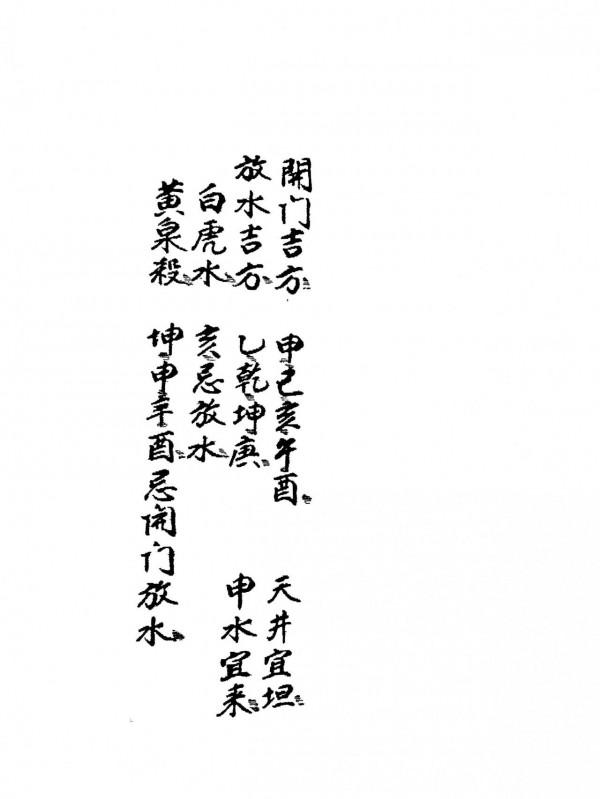 開门吉方 甲己亥午酉 天井宜坦
放水吉方 乙乾坤庚 申水宜来
白虎水 亥忌放水
黄泉殺 坤申辛酉忌開门放水